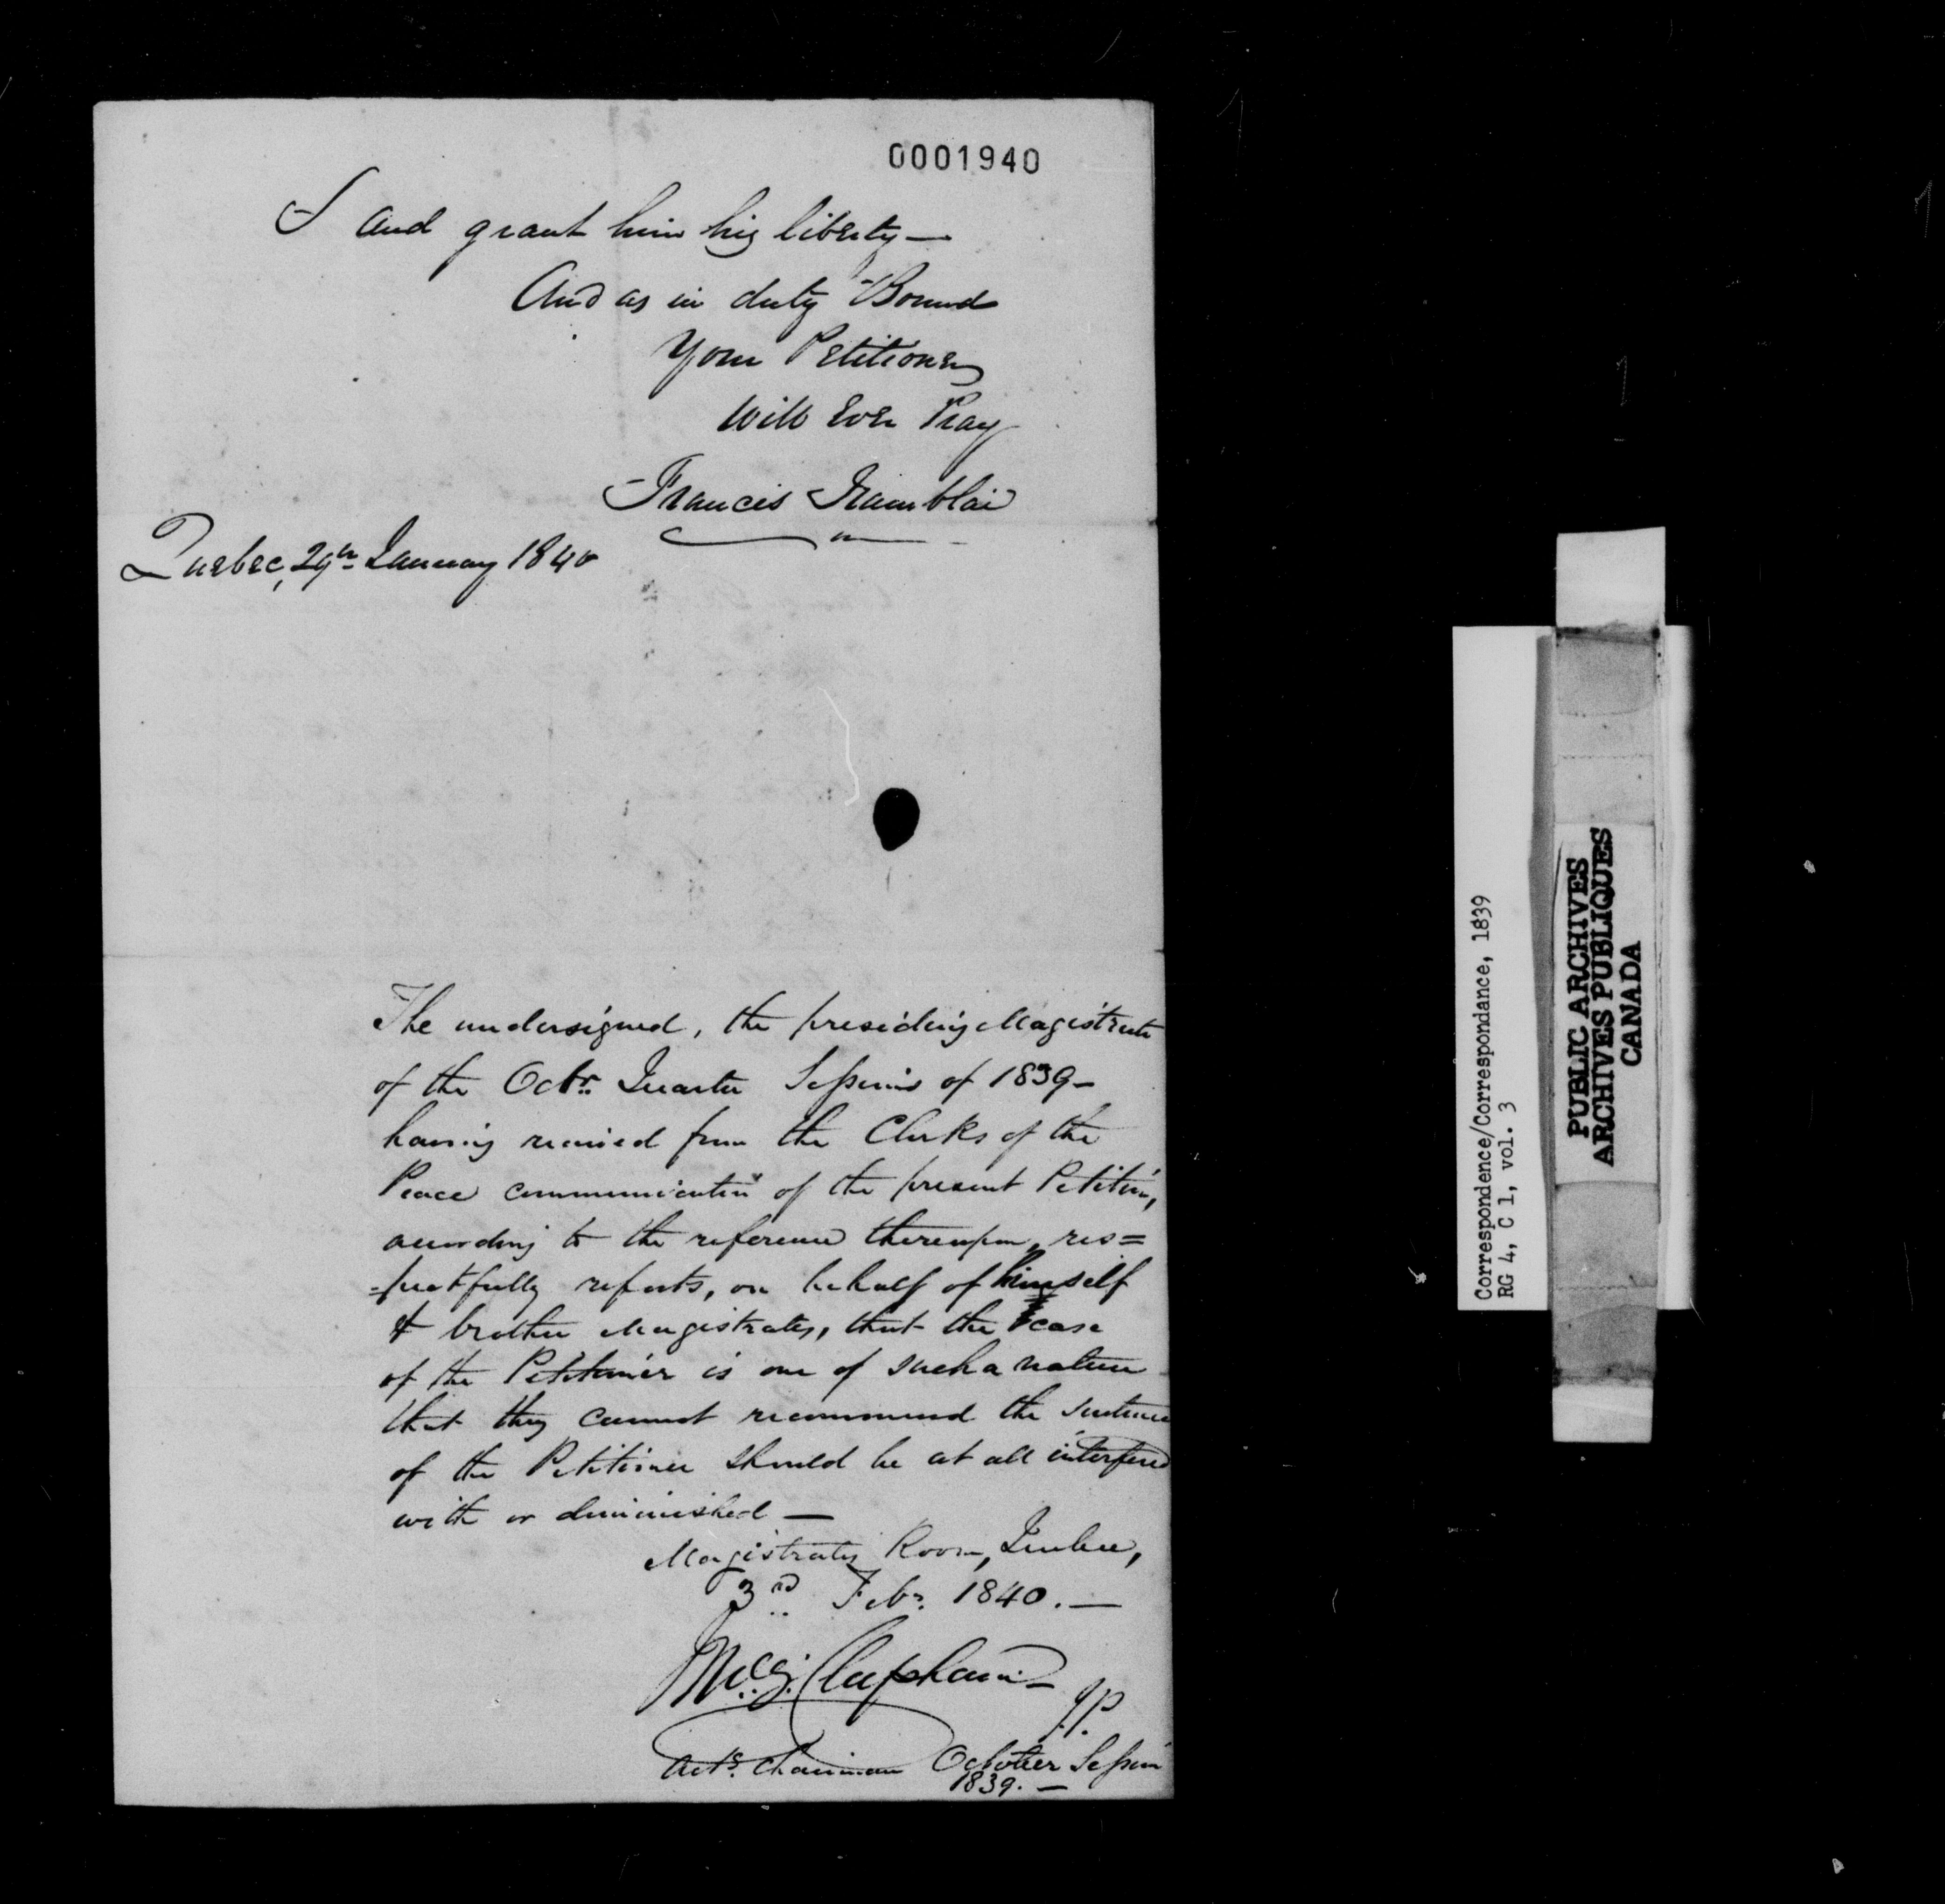 0001940
I and grant him his liberty —
And as in duty Bound
Your Petitioner
Will Ever Pray
Francis Tramblai
Quebec, 29th January 1840
The undersigned, the presiding Magistrate
of the Octr. Quarter Sessions of 1839 –
having received from the Clerks of the
Peace communication of the present Petition,
according to the reference thereupon, res=
=pectfully reports, on behalf of himself
& brother Magistrates, that the case
of the Petitioner is one of such a nature
that they cannot recommend the sentence
of the Petitioner should be at all interfered
with or diminished —
Magistrates Room, Quebec,
3rd Feby. 1840. —
Clapham
J.P.
Actg. Chairman October Session
1839. —
Correspondence/Correspondance, 1839
RG 4, C 1, vol. 3
PUBLIC ARCHIVES
ARCHIVES PUBLIQUES
CANADA